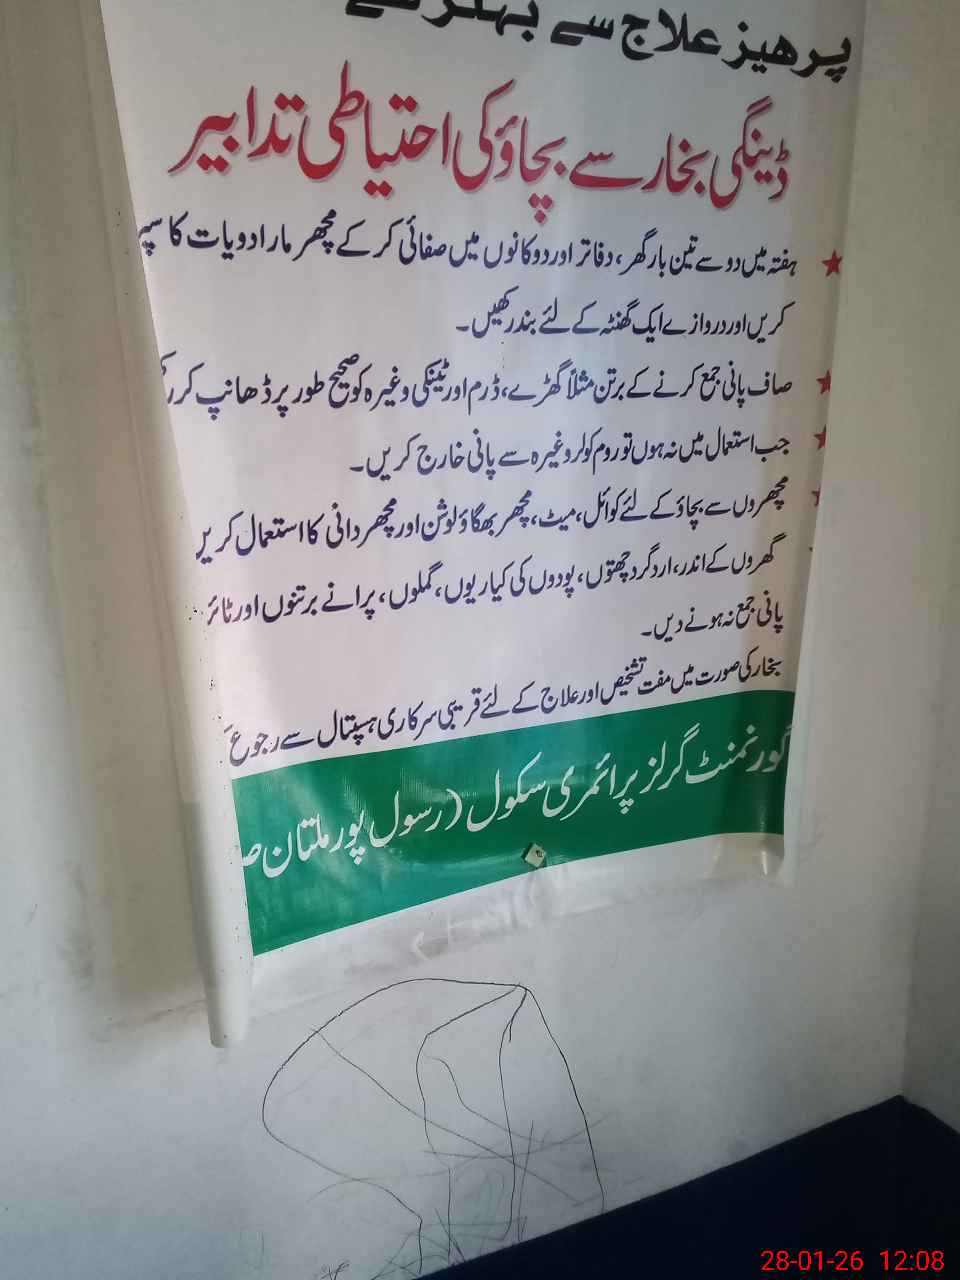 پرهیز علاج سے بہتر ہے
ڈینگی بخار سے بچاؤ کی احتیاطی تدابیر
ہفتہ میں دو سے تین بار گھر، دفاتر اور دوکانوں میں صفائی کر کے مچھر مار ادویات کا سپر
کریں اور دروازے ایک گھنٹہ کے لئے بند رکھیں۔
صاف پانی جمع کرنے کے برتن مثلاً گھڑے، ڈرم اور ٹینکی وغیرہ کو صحیح طور پر ڈھانپ کر
جب استعمال میں نہ ہوں تو روم کولر وغیرہ سے پانی خارج کریں۔
مچھروں سے بچاؤ کے لئے کوائل، میٹ، مچھر بھگاؤ لوشن اور مچھر دانی کا استعمال کریں
گھروں کے اندر، اردگرد چھتوں، پودوں کی کیاریوں، گملوں، پرانے برتنوں اور ٹائر
پانی جمع نہ ہونے دیں۔
بخار کی صورت میں مفت تشخیص اور علاج کے لئے قریبی سرکاری ہسپتال سے رجوع
گورنمنٹ گرلز پرائمری سکول (رسول پور ملتان
28-01-26 12:08